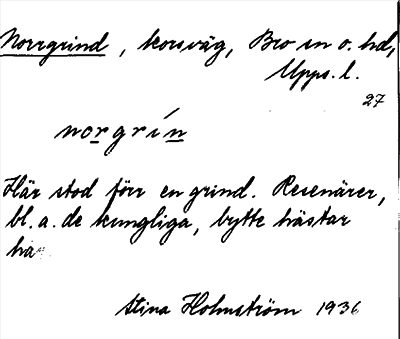 Norrgrind, korsväg, Bro sn o. hd,
Upps. l.
27
norgrín
Här stod förr en grind. Resenärer,
bl. a. de kungliga, bytte hästar
hä
Stina Holmström 1936